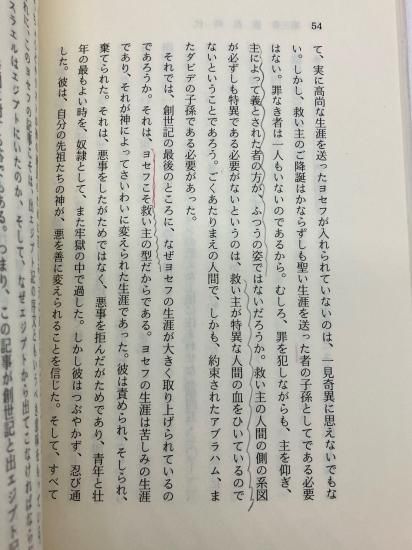 54
て、実に高尚な生涯を送ったヨセフが入れられていないのは、一見奇異に思えないでもな
い。しかし、救い主のご降誕はかならずしも聖い生涯を送った者の子孫としてである必要
はない。罪なき者は一人もいないのであるから。むしろ、罪を犯しながらも、主を仰ぎ、
主によって義とされた者の方が、ふつうの姿ではないだろうか。救い主の人間の側の系図
が必ずしも特異である必要がないというのは、救い主が特異な人間の血をひいているので
ないということであろう。ごくあたりまえの人間で、しかも、約束されたアブラハム、ま
たダビデの子孫である必要があった。
それでは、創世記の最後のところに、なぜヨセフの生涯が大きく取り上げられているの
であろうか。それは、ヨセフこそ救い主の型だからである。ヨセフの生涯は苦しみの生涯
であり、それが神によってさいわいに変えられた生涯であった。彼は責められ、そしられ、
棄てられた。それは、悪事をしたがためではなく、悪事を拒んだがためであり、青年と壮
年の最もよい時を、奴隷として、また牢獄の中で過した。しかし彼はつぶやかず、忍び通
した。彼は、自分の先祖たちの神が、悪を善に変えられることを信じた。そして、すべて
スラエルはエジプトにいたのか、そして、なぜエジプトから出てこなければならな
である。つまり、この記事が創世記と出エジプト記